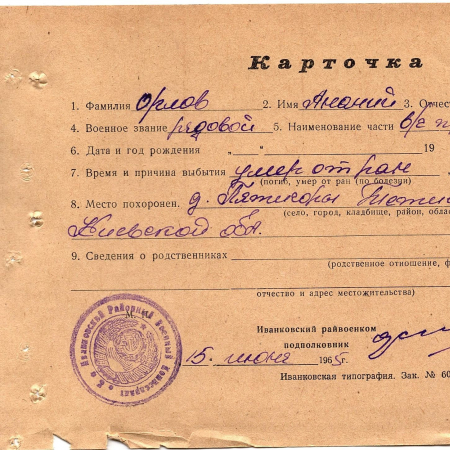 Карточка
1. Фамилия Орлов 2. Имя Ананий 3. Отчест
4. Военное звание рядовой 5. Наименование части в/с
6. Дата и год рождения „ „ 19
7. Время и причина выбытия умер от ран
(погиб, умер от ран (по болезни)
8. Место похоронен. д.
(село, город, кладбище, район, облас
Киевской обл.
9. Сведения о родственниках
(родственное отношение, ф
отчество и адрес местожительства)
М.
Иванковский Районный Военный Комиссариат
Иванковским райвоенком
подполковник
15. июня 1965г.
Иванковская типография. Зак. № 60